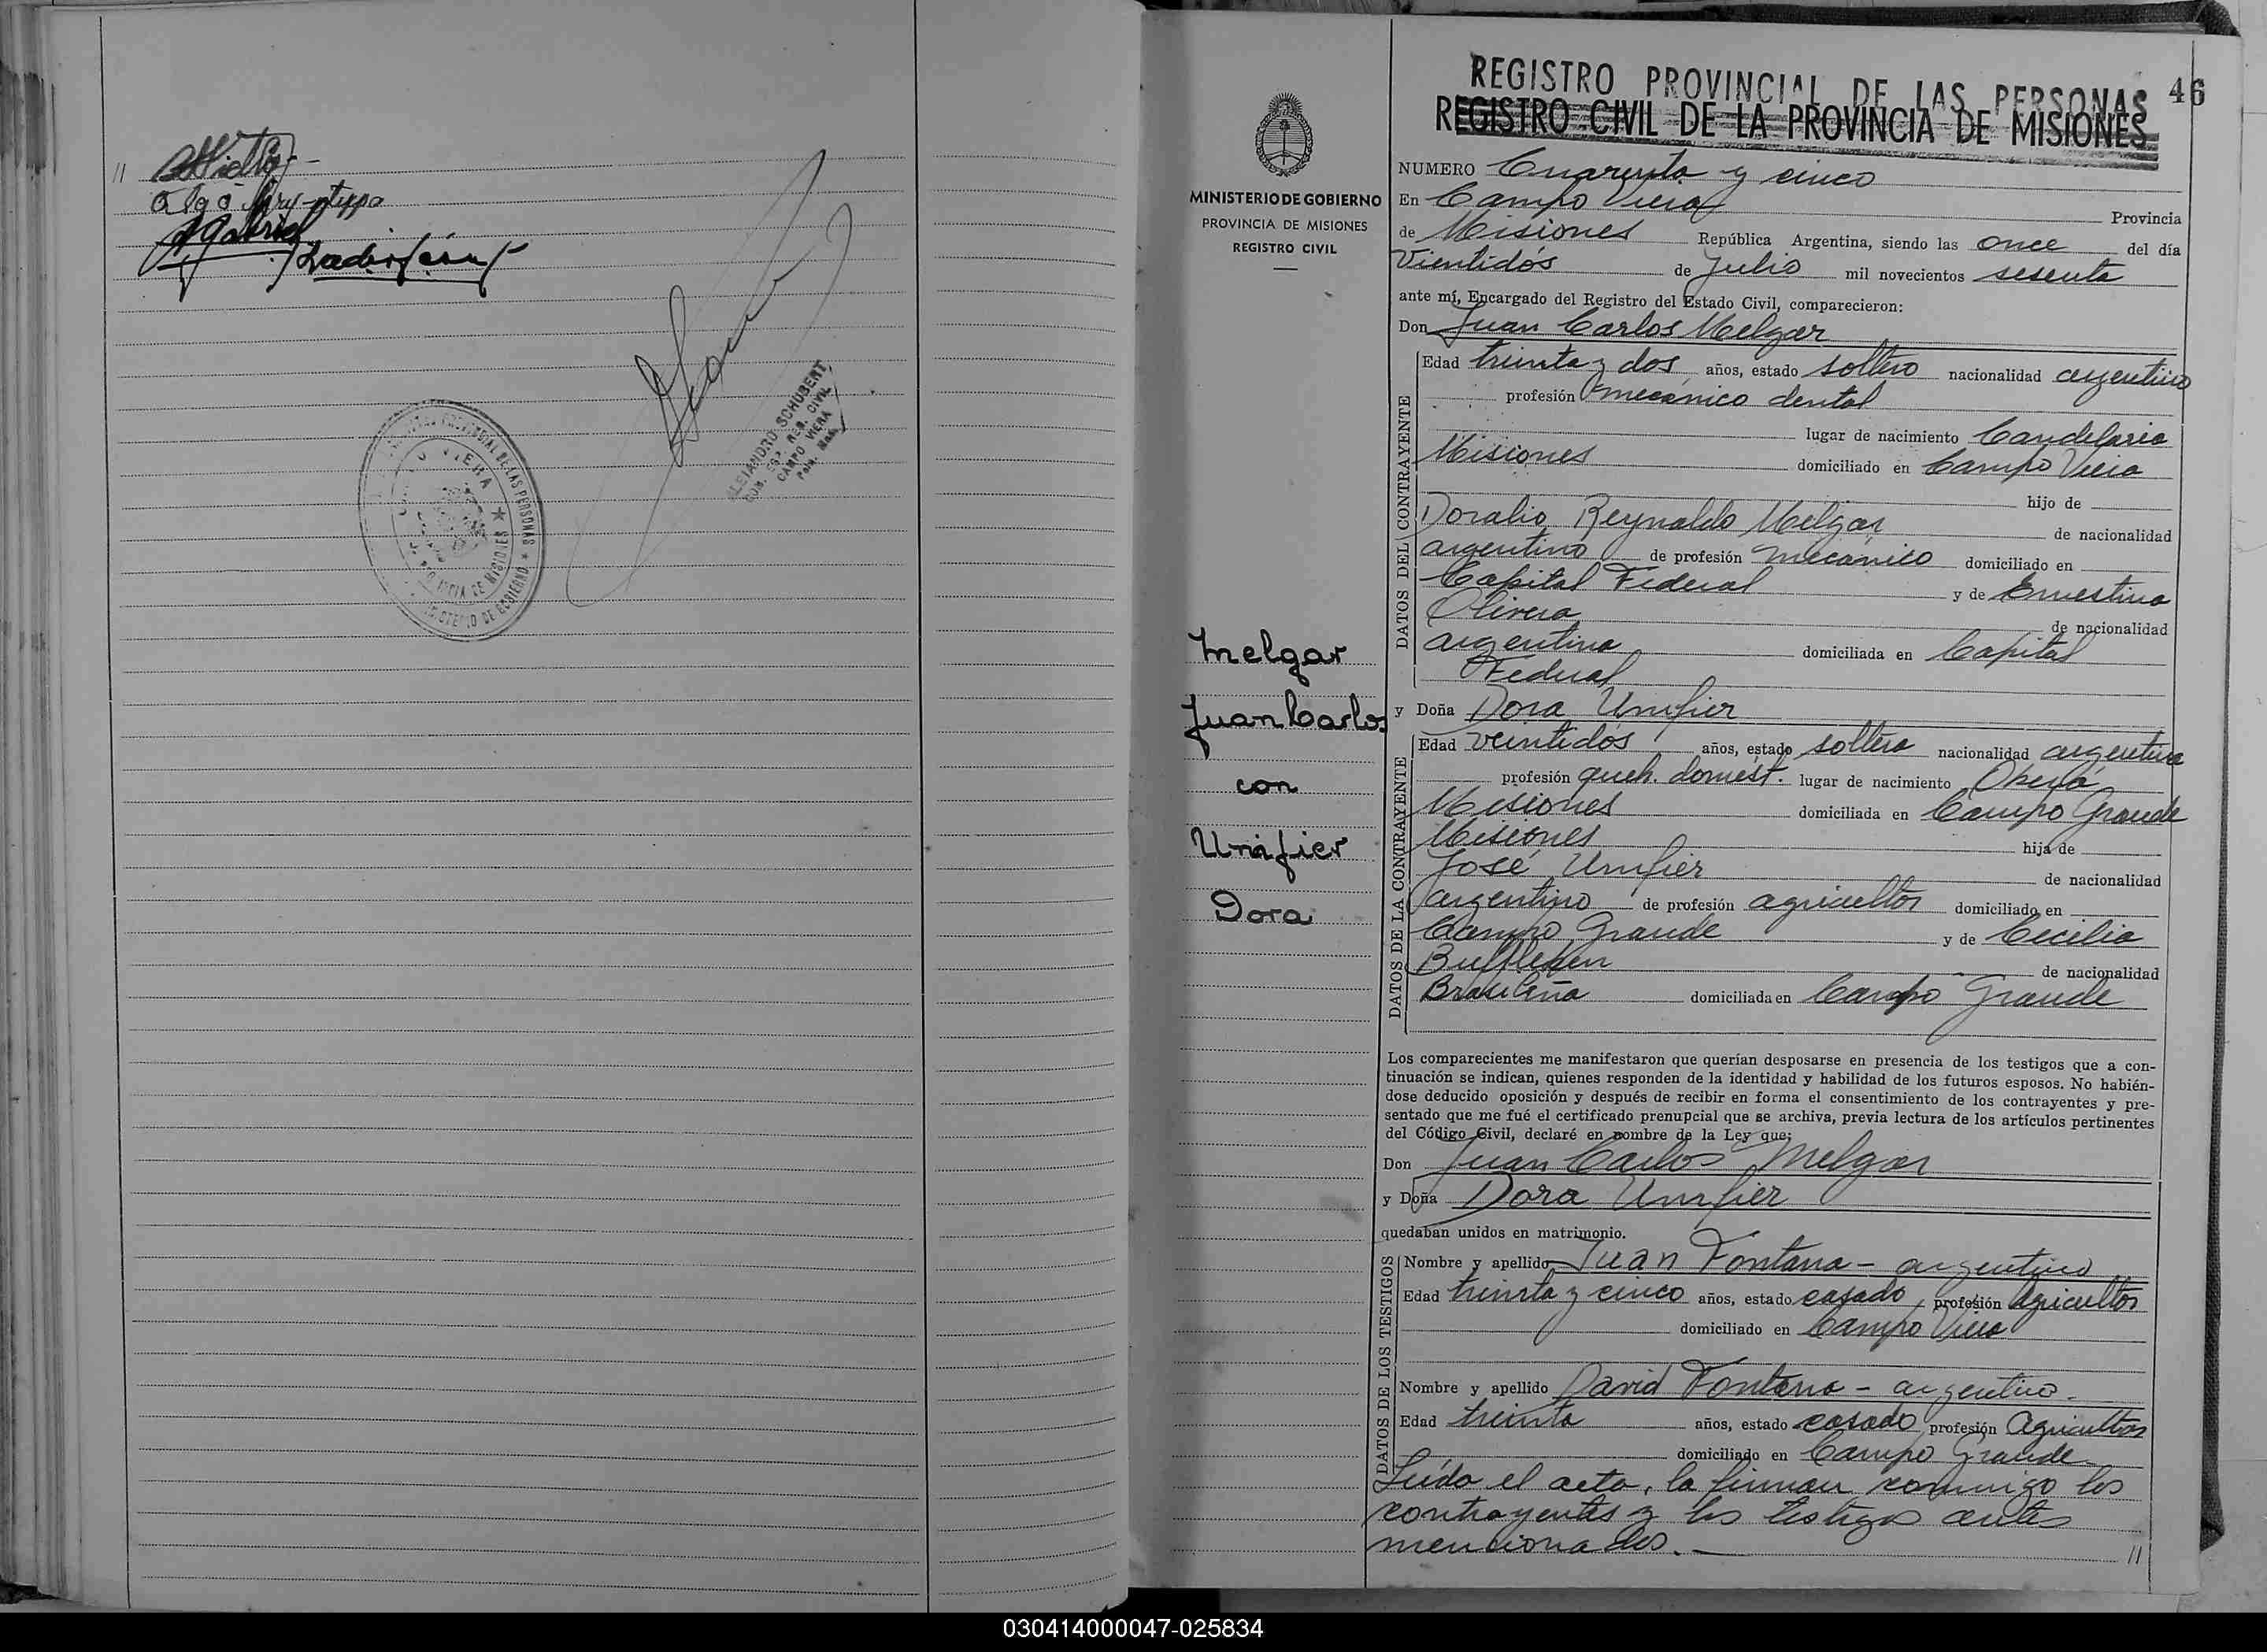 ALEJANDRO SCHUBERT
REG. CIVIL
CAMPO VIERA
46
REGISTRO PROVINCIAL DE LAS PERSONAS
REGISTRO CIVIL DE LA PROVINCIA DE MISIONES
MINISTERIO DE GOBIERNO
PROVINCIA DE MISIONES
REGISTRO CIVIL
Melgar
Juan Carlos
con
Unifier
Dora
NUMERO Cuarenta y cinco
En Campo Viera Provincia
de Misiones República Argentina, siendo las once del día
Vientidós de Julio mil novecientos sesenta
ante mí, Encargado del Registro del Estado Civil, comparecieron:
Don Juan Carlos Melgar
DATOS DEL CONTRAYENTE
Edad treinta y dos años, estado soltero nacionalidad argentino
profesión mecánico dental
lugar de nacimiento Candelaria
Misiones domiciliado en Campo Viera
hijo de
Doralio Reynaldo Melgar de nacionalidad
argentino de profesión mecánico domiciliado en
Capital Federal y de Ernestina
Olivera de nacionalidad
argentina domiciliada en Capital
Federal
y Doña Dora Unifier
DATOS DE LA CONTRAYENTE
Edad veintidos años, estado soltera nacionalidad argentina
profesión queh. domést. lugar de nacimiento Oberá
Misiones domiciliada en Campo Grande
Misiones hija de
José Unifier de nacionalidad
argentino de profesión agricultor domiciliado en
Campo Grande y de Cecilia
de nacionalidad
Brasileña domiciliada en Campo Grande
Los comparecientes me manifestaron que querían desposarse en presencia de los testigos que a con-
tinuación se indican, quienes responden de la identidad y habilidad de los futuros esposos. No habién-
dose deducido oposición y después de recibir en forma el consentimiento de los contrayentes y pre-
sentado que me fué el certificado prenupcial que se archiva, previa lectura de los artículos pertinentes
del Código Civil, declaré en nombre de la Ley que:
Don Juan Carlos Melgar
y Doña Dora Unifier
quedaban unidos en matrimonio.
DATOS DE LOS TESTIGOS
Nombre y apellido Juan Fontana - argentino
Edad treinta y cinco años, estado casado profesión Agricultor
domiciliado en Campo Viera
Nombre y apellido David Fontana - argentino.
Edad treinta años, estado casado profesión Agricultor
domiciliado en Campo Grande.
Leída el acta, la firman conmigo los
contrayentes y los testigos antes
mencionados. //
030414000047-025834